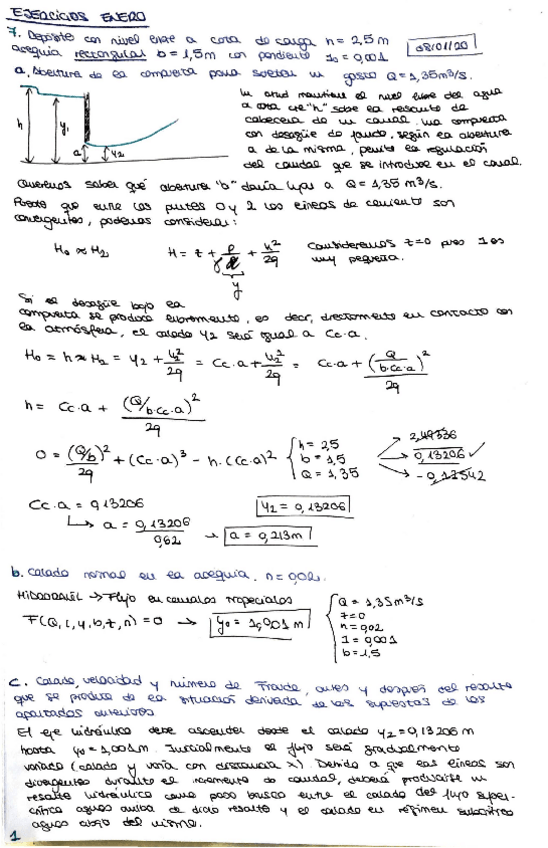 EJERCICIOS ENERO
7. Depósito con nivel erige a cota de carga h = 2,5 m
acequia rectangular b = 1,5m con pendiente I0 = 0,001
08/01/20
a. Abertura de la compuerta para soltar un gasto Q = 1,35m³/s.
h
y1
a
y2
mantiene el nivel libre del agua
a cota cte "h" sobre la rasante de
cabecera de un canal. Una compuerta
con desagüe de fondo, según la abertura
a de la misma, permite la regulación
del caudal que se introduce en el canal.
Queremos saber qué abertura "b" daría lugar a Q = 1,35 m³/s.
Puesto que entre los puntos 0 y 2 las líneas de corriente son
convergentes, podemos considerar:
H0 ≈ H2
H = z + P/γ + u²/2g
y
Consideremos z=0 pues I es
muy pequeña.
Si el desagüe bajo la
compuerta se produce libremente, es decir, directamente en contacto con
la atmósfera, el calado y2 será igual a Cc·a.
H0 = h ≈ H2 = y2 + u2²/2g = Cc·a + u2²/2g = Cc·a + (Q/b·Cc·a)²/2g
h = Cc·a + (Q/b·Cc·a)²/2g
0 = (Q/b)²/2g + (Cc·a)³ - h·(Cc·a)²
h = 2,5
b = 1,5
Q = 1,35
2,49336
0,13206 ✓
-0,13542
Cc·a = 0,13206
y2 = 0,13206
a = 0,13206/0,62 → a = 0,213m
b. Calado normal en la acequia. n = 0,02.
HIDROCANAL → Flujo en canales trapeciales
F(Q, I, y, b, z, n) = 0 → y0 = 1,001 m
Q = 1,35m³/s
z=0
n = 0,02
I = 0,001
b = 1,5
C. Calado, velocidad y número de Froude, antes y después del resalto
que se produce de la situación derivada de los supuestos de los
apartados anteriores.
El eje hidráulico debe ascender desde el calado y2 = 0,13206 m
hasta y0 = 1,001 m. Inicialmente el flujo será gradualmente
variado (calado y varía con distancia x). Debido a que las líneas son
divergentes durante el incremento de caudal, deberá producirse un
resalto hidráulico como paso brusco entre el calado del flujo super-
crítico aguas arriba de dicho resalto y el calado en régimen subcrítico
aguas abajo del mismo.
1